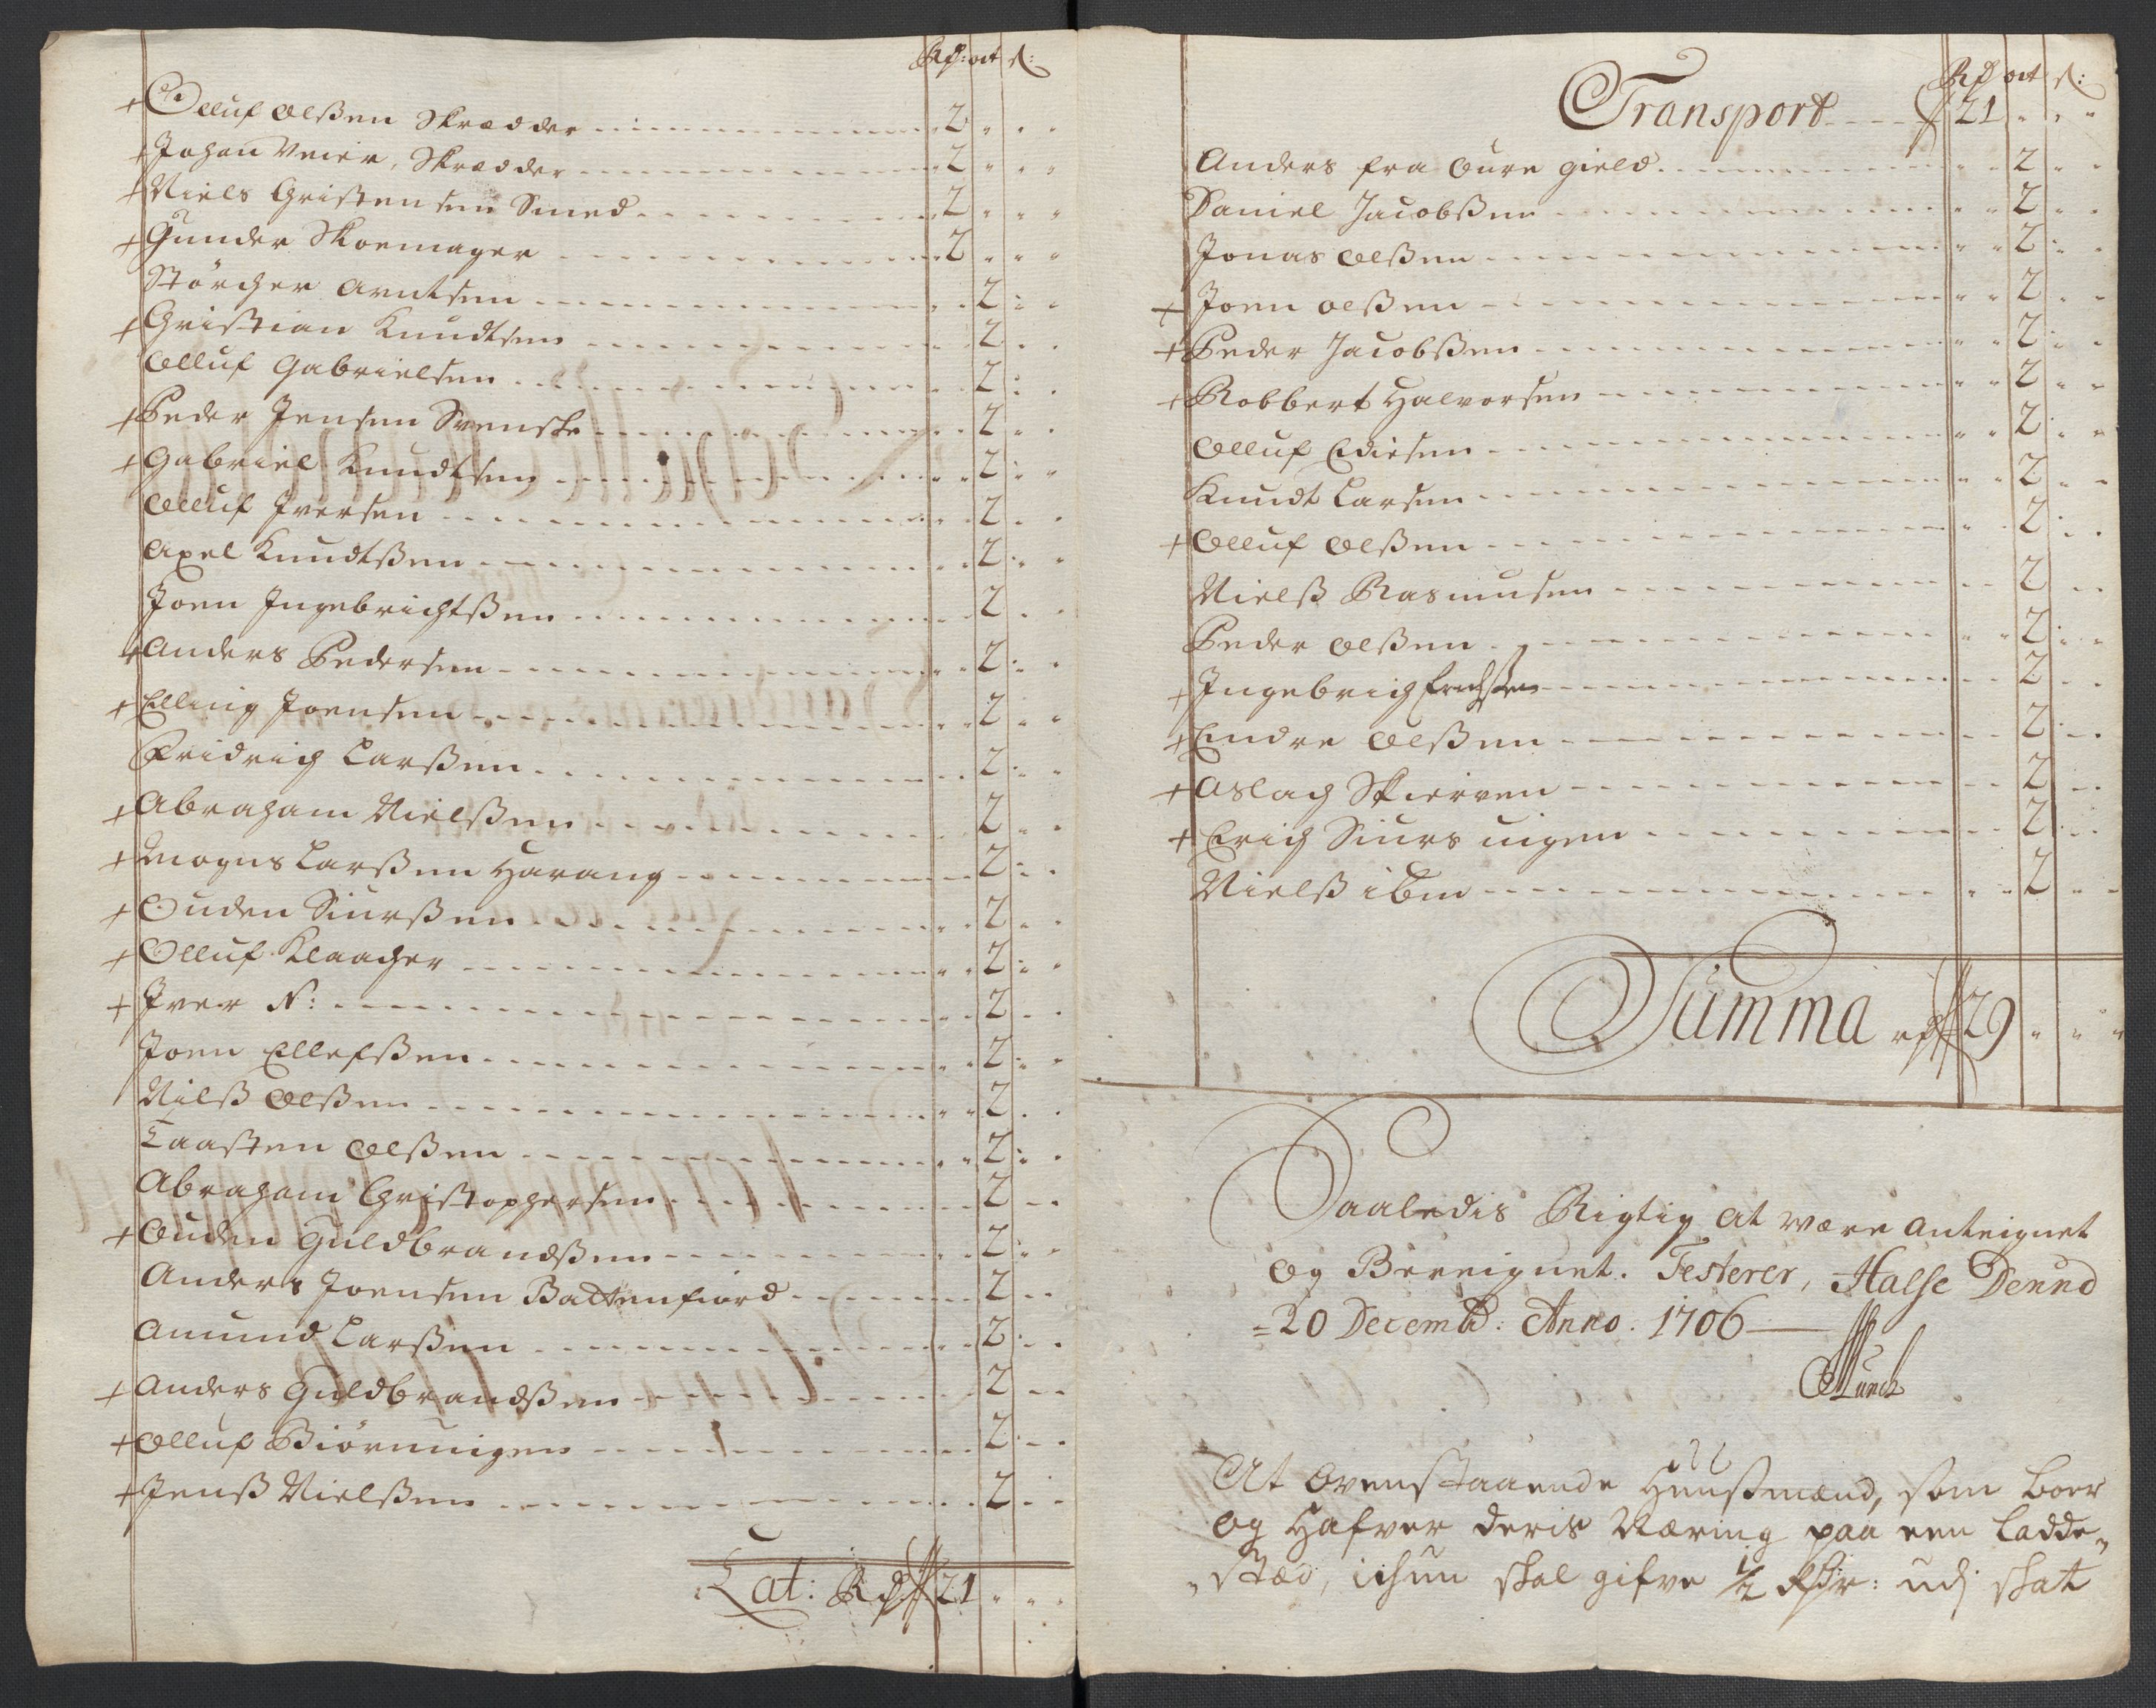 Rd: ort s:
+ Olluf Olßen Skrædder 2 " " "
+ Johan Meier, Skrædder 2 " " "
+ Niels Christensen Smed 2 " " "
+ Gunder Skoemager 2 " " "
Störcher Arntsen " " 2 " "
+ Christian Knudtsen " " 2 " "
Olluf Gabrielsen " " 2 " "
+ Peder Jensen Svenske " " 2 " "
+ Gabriel Knudtsen " " 2 " "
Olluf Iversen " " 2 " "
Axel Knudtßen " " 2 " "
Joen Ingebrichtßen " " 2 " "
+ Anders Pedersen " " 2 " "
+ Elling Joensen " " 2 " "
Fridrich Larßen " " 2 " "
+ Abraham Nielßen " " 2 " "
+ Mogns Larßen Harang " " 2 " "
+ Ouden Siurßen " " 2 " "
+ Olluf Klaacher " " 2 " "
+ Iver N: " " 2 " "
Joen Ellefßen " " 2 " "
Nilß Olßen " " 2 " "
Taasten Olßen " " 2 " "
Abraham Christophersen " " 2 " "
+ Ouden Guldbrandßen " " 2 " "
Anders Joensen Battenfiord " " 2 " "
Amund Larßen " " 2 " "
+ Anders Guldbrandßen " " 2 " "
+ Olluf Biörnuigen " " 2 " "
+ Jenß Nielßen " " 2 " "
Lat: Rd 21 " " "
Rd ort s:
Transport 21 " " "
Anders fra Oure gield " " 2 " "
Daniel Jacobßen " " 2 " "
Jonas Olßen " " 2 " "
+ Joen Olßen " " 2 " "
+ Peder Jacobßen " " 2 " "
+ Robbert Halvorsen " " 2 " "
Olluf Edisen " " 2 " "
Knudt Larsen " " 2 " "
+ Olluf Olßen " " 2 " "
Nielß Rasmusen " " 2 " "
Peder Olßen " " 2 " "
+ Ingebrich Erichßen " " 2 " "
+ Endre Olßen " " 2 " "
+ Aslach Skierven " " 2 " "
+ Erich Siurs uigen " " 2 " "
Nielß ibm " " 2 " "
Summa rd 29 " " "
Saaledis Rigtig at være anteignet
og Bereignet. Testerer, Halse Dend
= 20 Decemb: Anno. 1706
Munch
At Ovenstaaende Huusmænd, som boer
og Hafver deris Næring paa een Ladde„
„stæd, ichun skal gifve ½ Rdr: udj skat